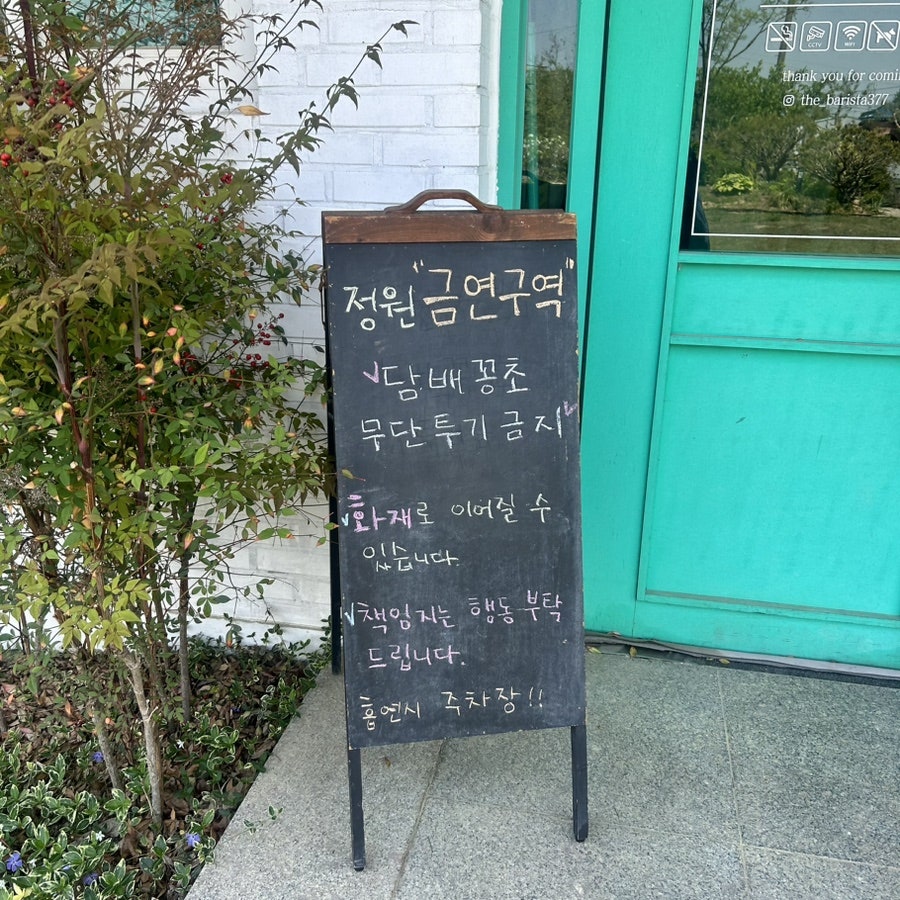 CCTV
WIFI
thank you for comin
the_barista377
정원 "금연구역"
담배 꽁초
무단 투기 금지
화재로 이어질 수
있습니다.
책임지는 행동 부탁
드립니다.
흡연시 주차장!!